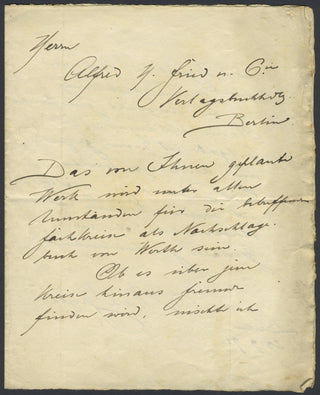 Herrn
Alfred H. Fried u. Cie
Verlagsbuchholg.
Berlin
Das von Ihnen geplante
Werk wird unter allen
Umständen für die betreffenden
Fachkreise als Nachschlage-
buch von Werth sein.
Ob es über jene
Kreise hinaus Freunde
finden wird, möchte ich